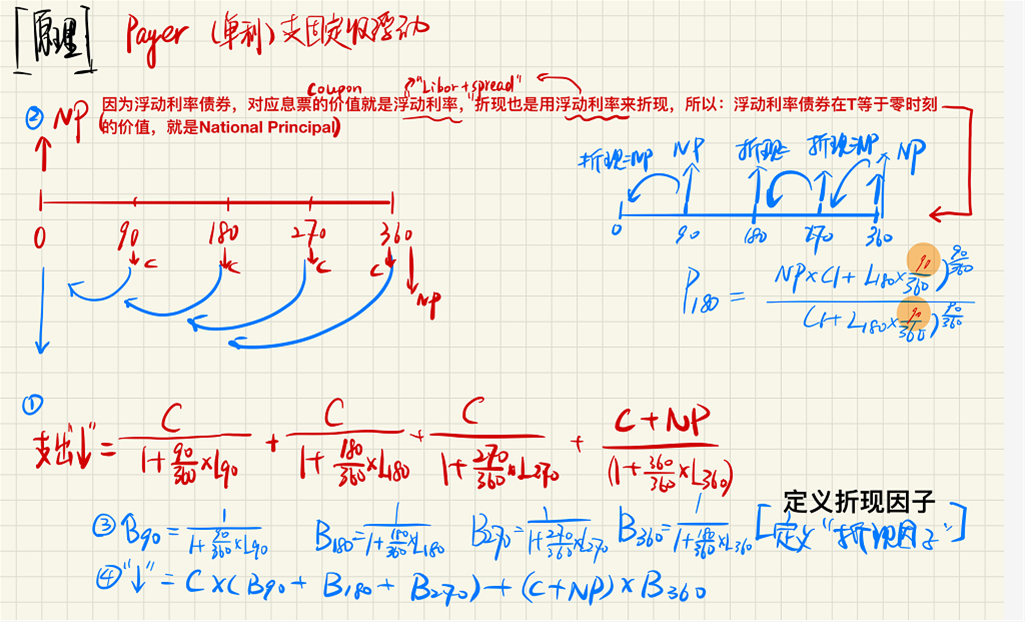 [原理] Payer (单利) 支固定收浮动
coupon "Libor+spread"
② NP 因为浮动利率债券，对应息票的价值就是浮动利率，"折现也是用浮动利率来折现，所以：浮动利率债券在T等于零时刻
的价值，就是National Principal)
折现=NP NP 折现= 折现=NP NP
0 90 180 270 360
0 90 180 270 360
C C C C
NP
P180 = NP×(1+L180×90/360)^90/360 / (1+L180×90/360)^90/360
①
支出"↓" = C/(1+90/360×L90) + C/(1+180/360×L180) + C/(1+270/360×L270) + C+NP/(1+360/360×L360)
定义折现因子
③ B90=1/(1+90/360×L90) B180=1/(1+180/360×L180) B270=1/(1+270/360×L270) B360=1/(1+360/360×L360) [定义"折现因子"]
④ "↓" = C×(B90+B180+B270)+(C+NP)×B360